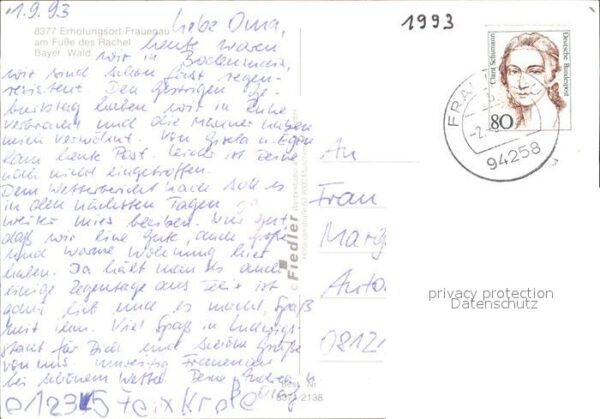 1.9.93
8377 Erholungsort Frauenau
am Fuße des Rachel
Bayer. Wald
Liebe Oma,
heute waren
wir in Bodenmais,
wir sind schon fast regen-
resistent. Den gestrigen Ge-
burtstag haben wir in Ruhe
verbracht und die Männer haben
mich verwöhnt. Von Gisela u. Egon
kam heute Post. Leider ist Deine
noch nicht eingetroffen.
Dem Wetterbericht nach soll es
in den nächsten Tagen so
weiter mies bleiben. Nur gut
daß wir eine gute, auch große
und warme Wohnung hier
haben. Da hält man es auch
einige Regentage aus. Felix ist
ganz lieb und es macht Spaß
mit ihm. Viel Spaß in Ludwigs
stadt für Dich und schöne Grüße
von uns
bei schönem Wetter Deine Andrea u.
012345 Felix
Best. Nr.
8374 2138
© Fiedler
1993
Clara Schumann
Deutsche Bundespost
80
FRA
-2.
94258
An
Frau
Marg
Anto
0812
privacy protection
Datenschutz